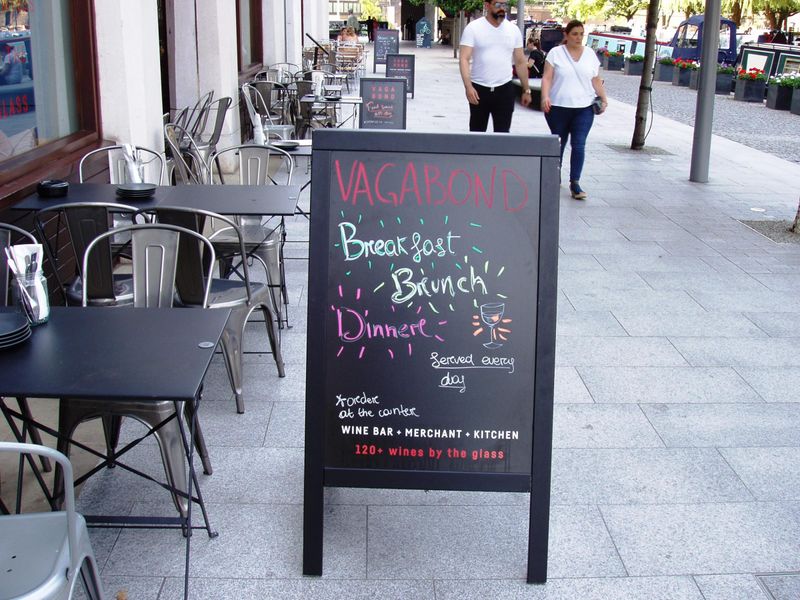 VAGABOND
Breakfast
Brunch
Dinnere
served every
day
*order
at the conter
WINE BAR + MERCHANT + KITCHEN
120+ wines by the glass
VAGA
BOND
GLASS